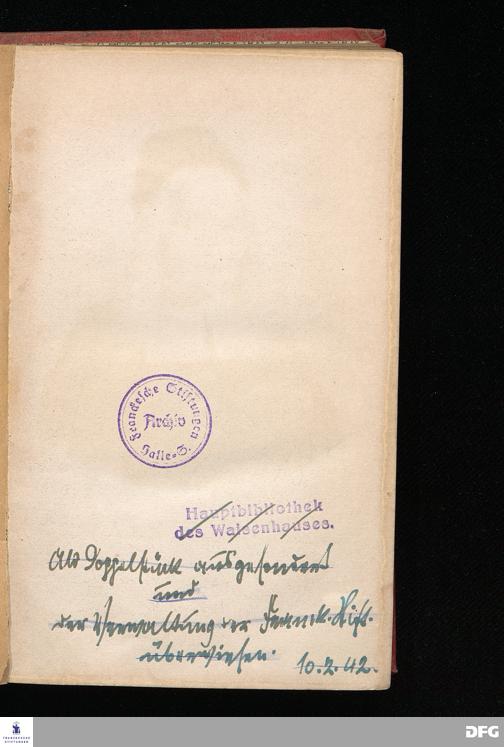 Franckesche Stiftungen
Archiv
Halle-S.
Hauptbibliothek
des Waisenhauses.
Als Doppelstück ausgesondert
und
der Verwaltung der Franck. Stift.
überwiesen. 10.2.42.
FRANCKESCHE
STIFTUNGEN
DFG